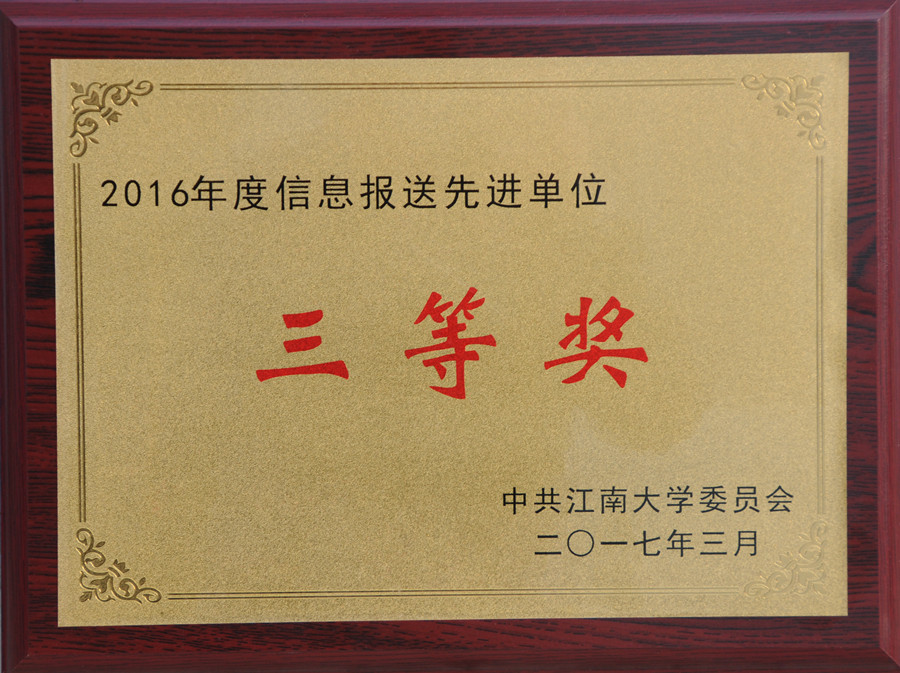 2016年度信息报送先进单位
三等奖
中共江南大学委员会
二〇一七年三月